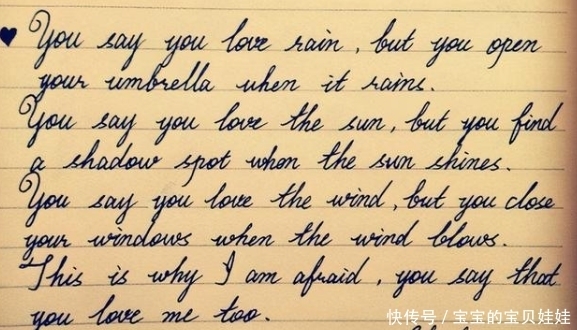 You say you love rain, but you open
your umbrella when it rains.
You say you love the sun, but you find
a shadow spot when the sun shines.
You say you love the wind, but you close
your windows when the wind blows.
This is why I am afraid, you say that
you love me too.
快传号/宝宝的宝贝娃娃